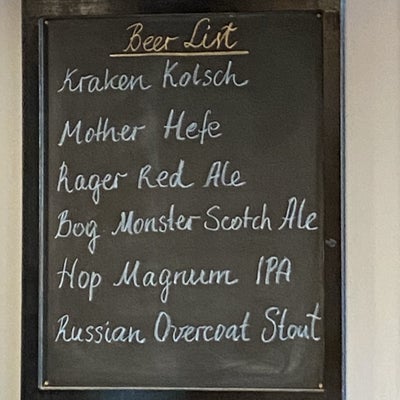 Beer List
Kraken Kolsch
Mother Hefe
Rager Red Ale
Bog Monster Scotch Ale
Hop Magnum IPA
Russian Overcoat Stout